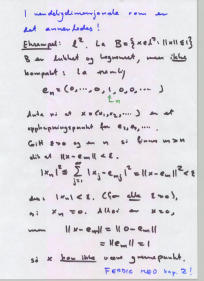 I uendeligdimensjonale rom er
det annerledes!
Eksempel: ℓ². La B = {x ∈ ℓ² : ||x|| ≤ 1}
B er lukket og begrenset, men ikke
kompakt: La
eₙ = (0,…,0,1,0,0,…)
↑ n
Anta nå at x = (x₁,x₂,…) er et
opphopningspunkt for e₁,e₂,….
Gitt ε>0 og en n så finnes m>n
slik at ||x−eₘ|| < ε.
|xₙ|² ≤ Σ |xⱼ−eₘⱼ|² = ||x−eₘ||² < ε²
dvs: |xₙ| < ε. (for alle ε>0),
så xₙ = 0. Altså er x=0,
men ||x−eₘ|| = ||0−eₘ||
= ||eₘ|| = 1
så x kan ikke være grensepunkt.
FERDIG MED kap. 2!